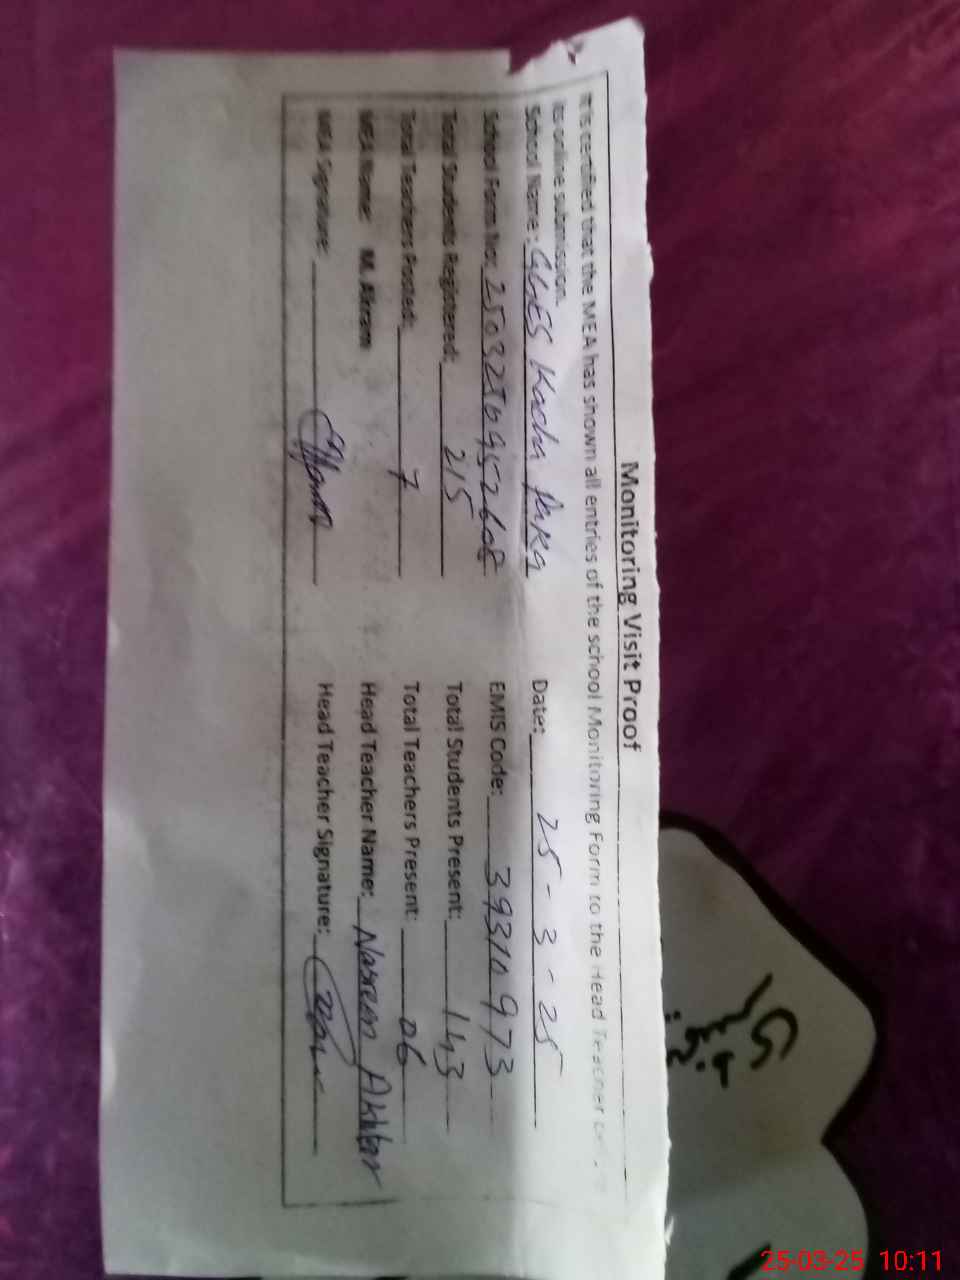 Monitoring Visit Proof
It is certified that the MEA has shown all entries of the school Monitoring Form to the Head Teacher
its online submission.
School Name: GGES Kacha Paka Date: 25-3-25
School Form No: EMIS Code: 39310973
Total Students Registered: 215 Total Students Present: 143
Total Teachers Posted: 7 Total Teachers Present: 06
MEA Name: M. Akram Head Teacher Name: Nasreen Akhtar
MEA Signature: Head Teacher Signature:
25-03-25 10:11